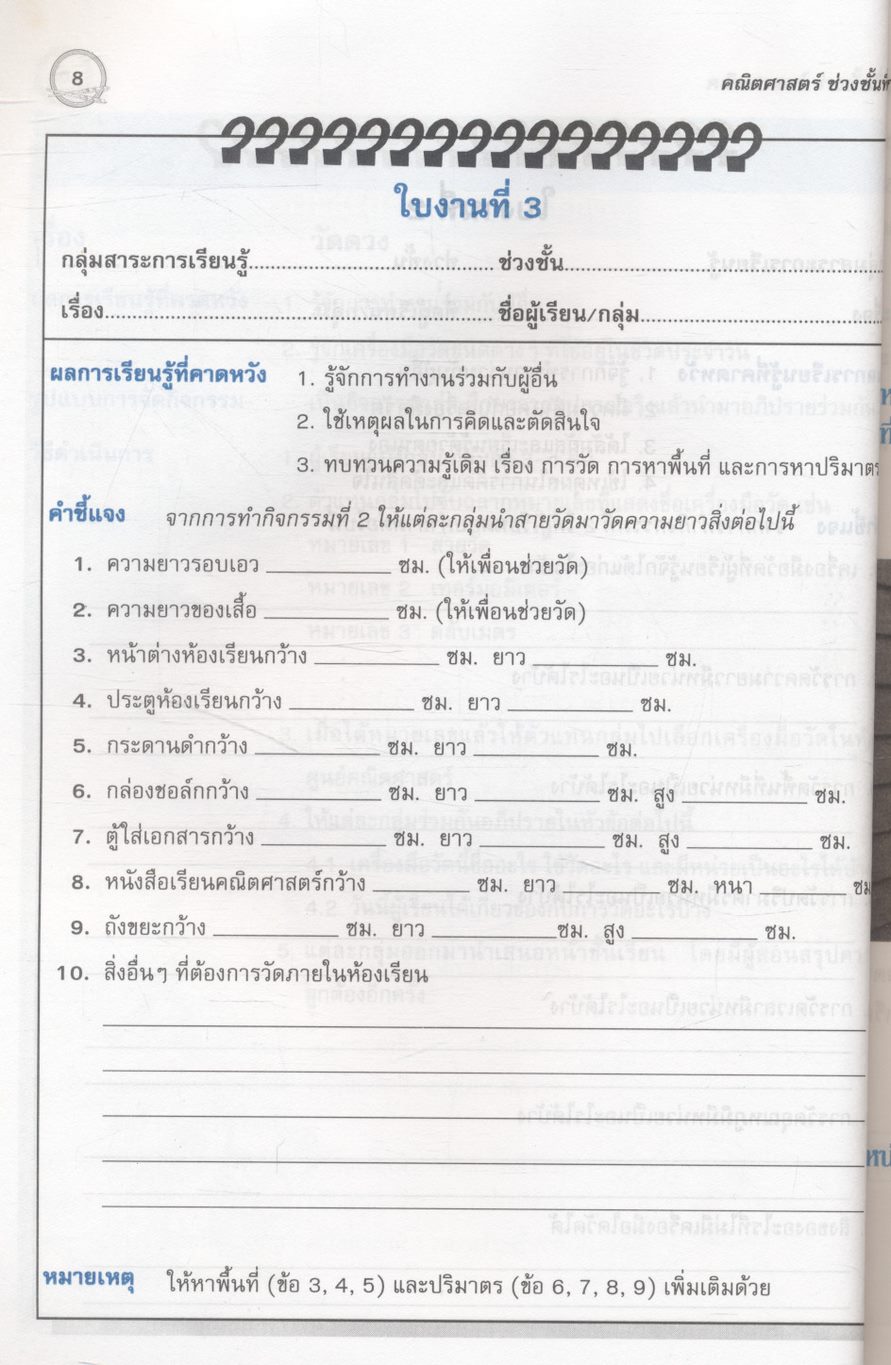 8
คณิตศาสตร์ ช่วงชั้น
ใบงานที่ 3
กลุ่มสาระการเรียนรู้.......................................... ช่วงชั้น..........................................
เรื่อง.......................................... ชื่อผู้เรียน/กลุ่ม..........................................
ผลการเรียนรู้ที่คาดหวัง 1. รู้จักการทำงานร่วมกับผู้อื่น
2. ใช้เหตุผลในการคิดและตัดสินใจ
3. ทบทวนความรู้เดิม เรื่อง การวัด การหาพื้นที่ และการหาปริมาตร
คำชี้แจง จากการทำกิจกรรมที่ 2 ให้แต่ละกลุ่มนำสายวัดมาวัดความยาวสิ่งต่อไปนี้
1. ความยาวรอบเอว __________ ซม. (ให้เพื่อนช่วยวัด)
2. ความยาวของเสื้อ __________ ซม. (ให้เพื่อนช่วยวัด)
3. หน้าต่างห้องเรียนกว้าง __________ ซม. ยาว __________ ซม.
4. ประตูห้องเรียนกว้าง __________ ซม. ยาว __________ ซม.
5. กระดานดำกว้าง __________ ซม. ยาว __________ ซม.
6. กล่องชอล์กกว้าง __________ ซม. ยาว __________ ซม. สูง __________ ซม.
7. ตู้ใส่เอกสารกว้าง __________ ซม. ยาว __________ ซม. สูง __________ ซม.
8. หนังสือเรียนคณิตศาสตร์กว้าง __________ ซม. ยาว __________ ซม. หนา __________ ซม
9. ถังขยะกว้าง __________ ซม. ยาว __________ซม. สูง __________ ซม.
10. สิ่งอื่นๆ ที่ต้องการวัดภายในห้องเรียน
หมายเหตุ ให้หาพื้นที่ (ข้อ 3, 4, 5) และปริมาตร (ข้อ 6, 7, 8, 9) เพิ่มเติมด้วย